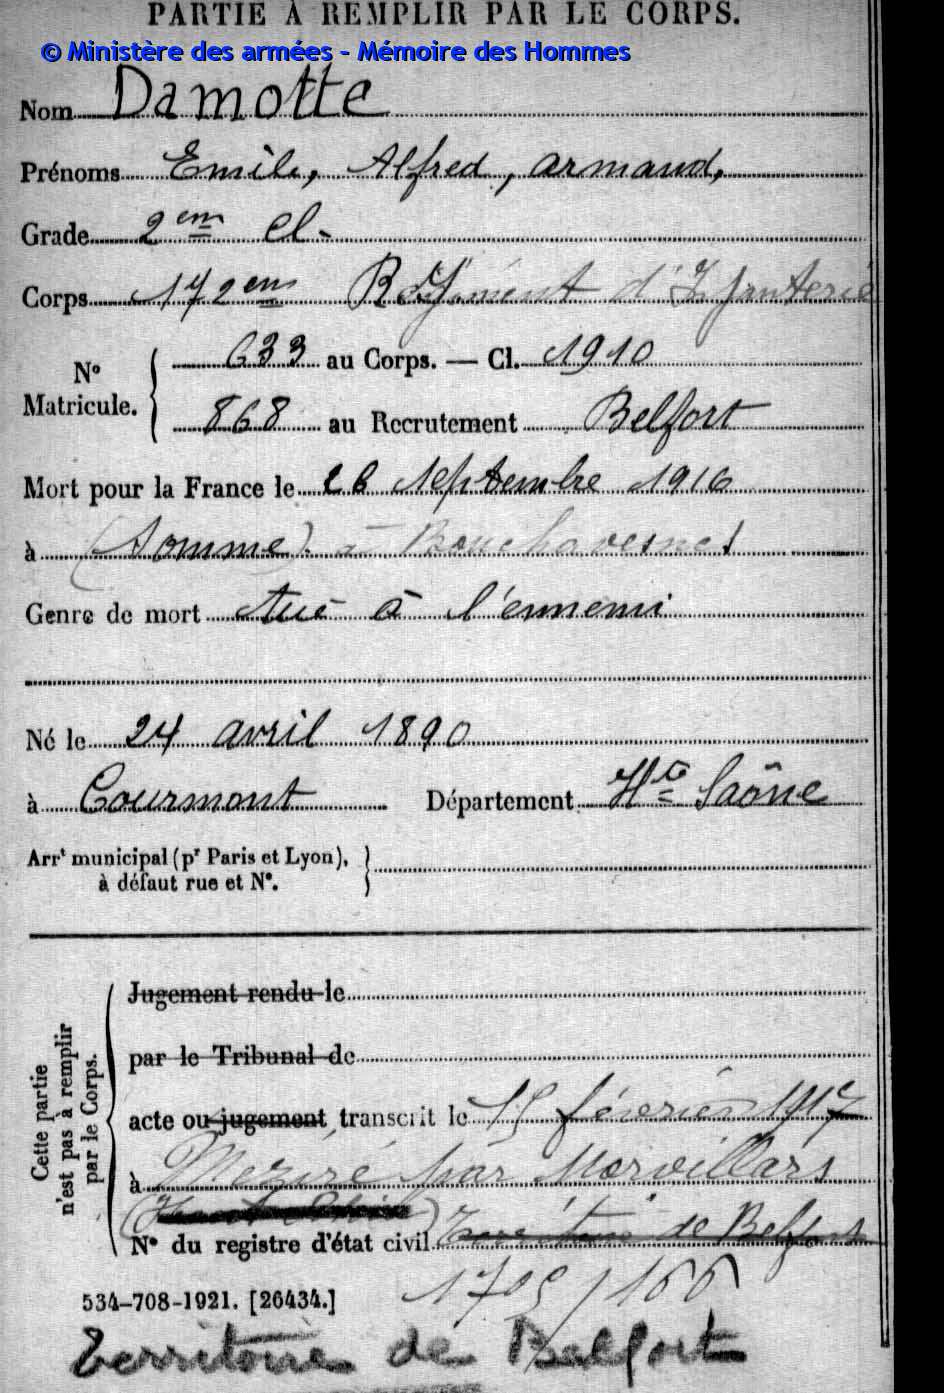 PARTIE À REMPLIR PAR LE CORPS.
© Ministère des armées - Mémoire des Hommes
Nom Damotte
Prénoms Emile, Alfred, Armand,
Grade 2em Cl.
Corps 172em Régiment d'Infanterie
No Matricule. 633 au Corps. — Cl. 1910
868 au Recrutement Belfort
Mort pour la France le 26 Septembre 1916
à (Somme). à Bouchavesnes
Genre de mort tué à l'ennemi
Né le 24 avril 1890
à Courmont Département Hte Saône
Arrt municipal (pr Paris et Lyon),
à défaut rue et No.
Cette partie
n'est pas à remplir
par le Corps.
Jugement rendu le
par le Tribunal de
acte ou jugement transcrit le 15 février 1917
à Meziré par Morvillars
No du registre d'état civil Territoire de Belfort
534-708-1921. [26434.] 1705/166
Territoire de Belfort